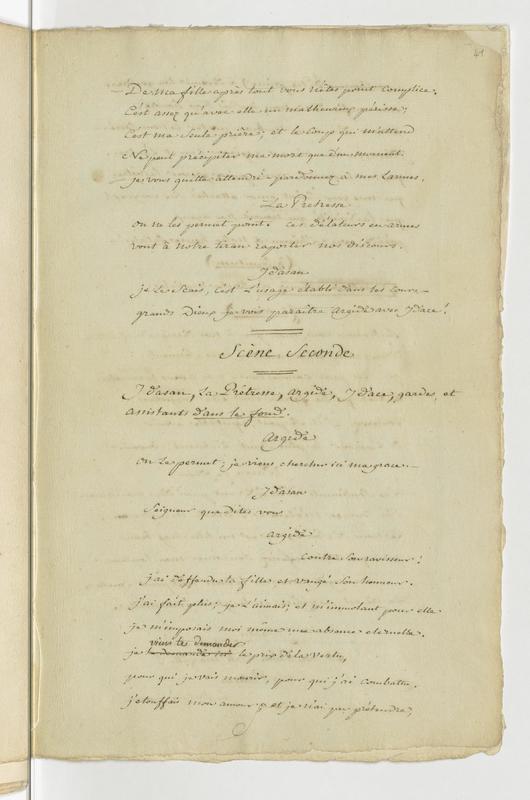 41
De ma fille après tout vous n'êtes point complice;
C'est assez qu'avec elle un malheureux périsse;
C'est ma seule prière; et le coup qui m'attend
Ne peut précipiter ma mort que d'un moment.
je vous quitte attendri pardonnez à mes larmes.
La Prêtresse
on ne les permet point. ces délateurs en armes
vont à notre tiran raporter nos discours.
Idasan
je le scais, c'est l'usage établi dans les cours –
grands Dieux je vois paraître Argide avec Idace!
Scène Seconde
Idasan, La Prêtresse, Argide, Idace, gardes, et
assistants dans le fond.
Argide
on le permet; je viens chercher ici ma grace. –
Idasan
Seigneur que dites vous
Argide
contre son ravisseur!
j'ai deffendu ta fille et vangé son honneur.
j'ai fait plus; je l'aimais; et m'immolant pour elle
je m'imposais moi même une absence eternelle.
viens te demander
je te demande ici le prix de la vertu,
pour qui je vais mourir, pour qui j'ai combattu.
j'etouffais mon amour; et je n'ai pu prétendre,